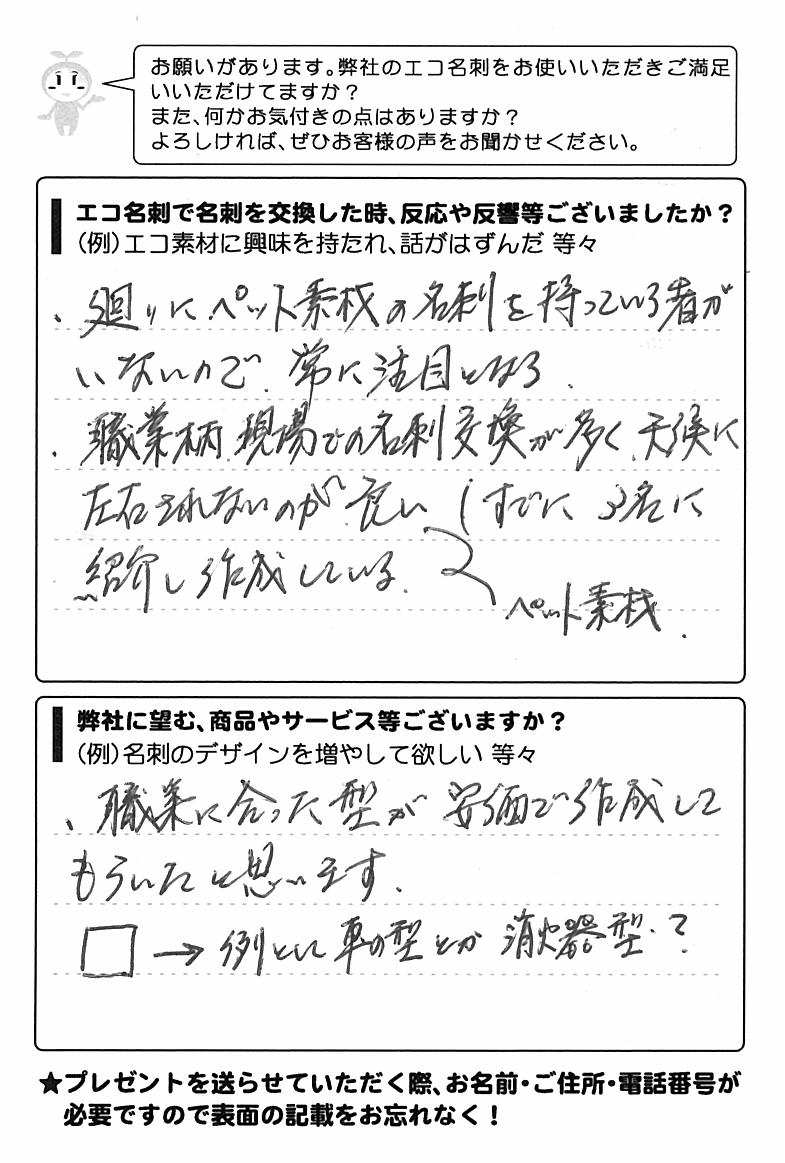 お願いがあります。弊社のエコ名刺をお使いいただきご満足
いいただけてますか？
また、何かお気付きの点はありますか？
よろしければ、ぜひお客様の声をお聞かせください。
エコ名刺で名刺を交換した時、反応や反響等ございましたか？
（例）エコ素材に興味を持たれ、話がはずんだ 等々
、廻りにペット素材の名刺を持っている者が
いないので、常に注目となる.
、職業柄、現場での名刺交換が多く、天候に
左右されないのが良い (すでに3名に
紹介し作成している.
ペット素材.
弊社に望む、商品やサービス等ございますか？
（例）名刺のデザインを増やして欲しい 等々
、職業に合った型が安価で作成して
もらいたと思います.
□→例とし車の型とか消火器型.?
★プレゼントを送らせていただく際、お名前・ご住所・電話番号が
必要ですので表面の記載をお忘れなく！